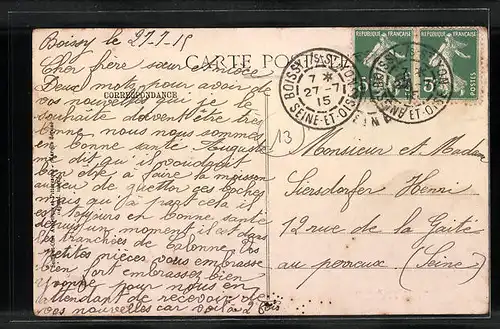 Boissy le 27-7-15
CARTE POSTALE
Cher frère sœur
CORRESPONDANCE
Deux mots pour avoir de
vos nouvelles que je le
souhaite doivent être très
bonne nous nous sommes
en bonne santé Auguste
me dit qu'il voudrait
bien être à faire la moisson
au lieu de guetter les boches
mais qu'à part cela il
est toujours en bonne santé
depuis un moment il est dans
les tranchées de
petites nièces vous embrasse
bien fort embrassez bien
Yvonne pour nous en
attendant de recevoir de
vos nouvelles car voilà 2 fois
RÉPUBLIQUE FRANÇAISE
RÉPUBLIQUE FRANÇAISE
5c
POSTES
7 *
27-7
15
SEINE-ET-OISE
13
Monsieur et Madame
Siersdorfer Henri
12 rue de la Gaité
au perreux (Seine)